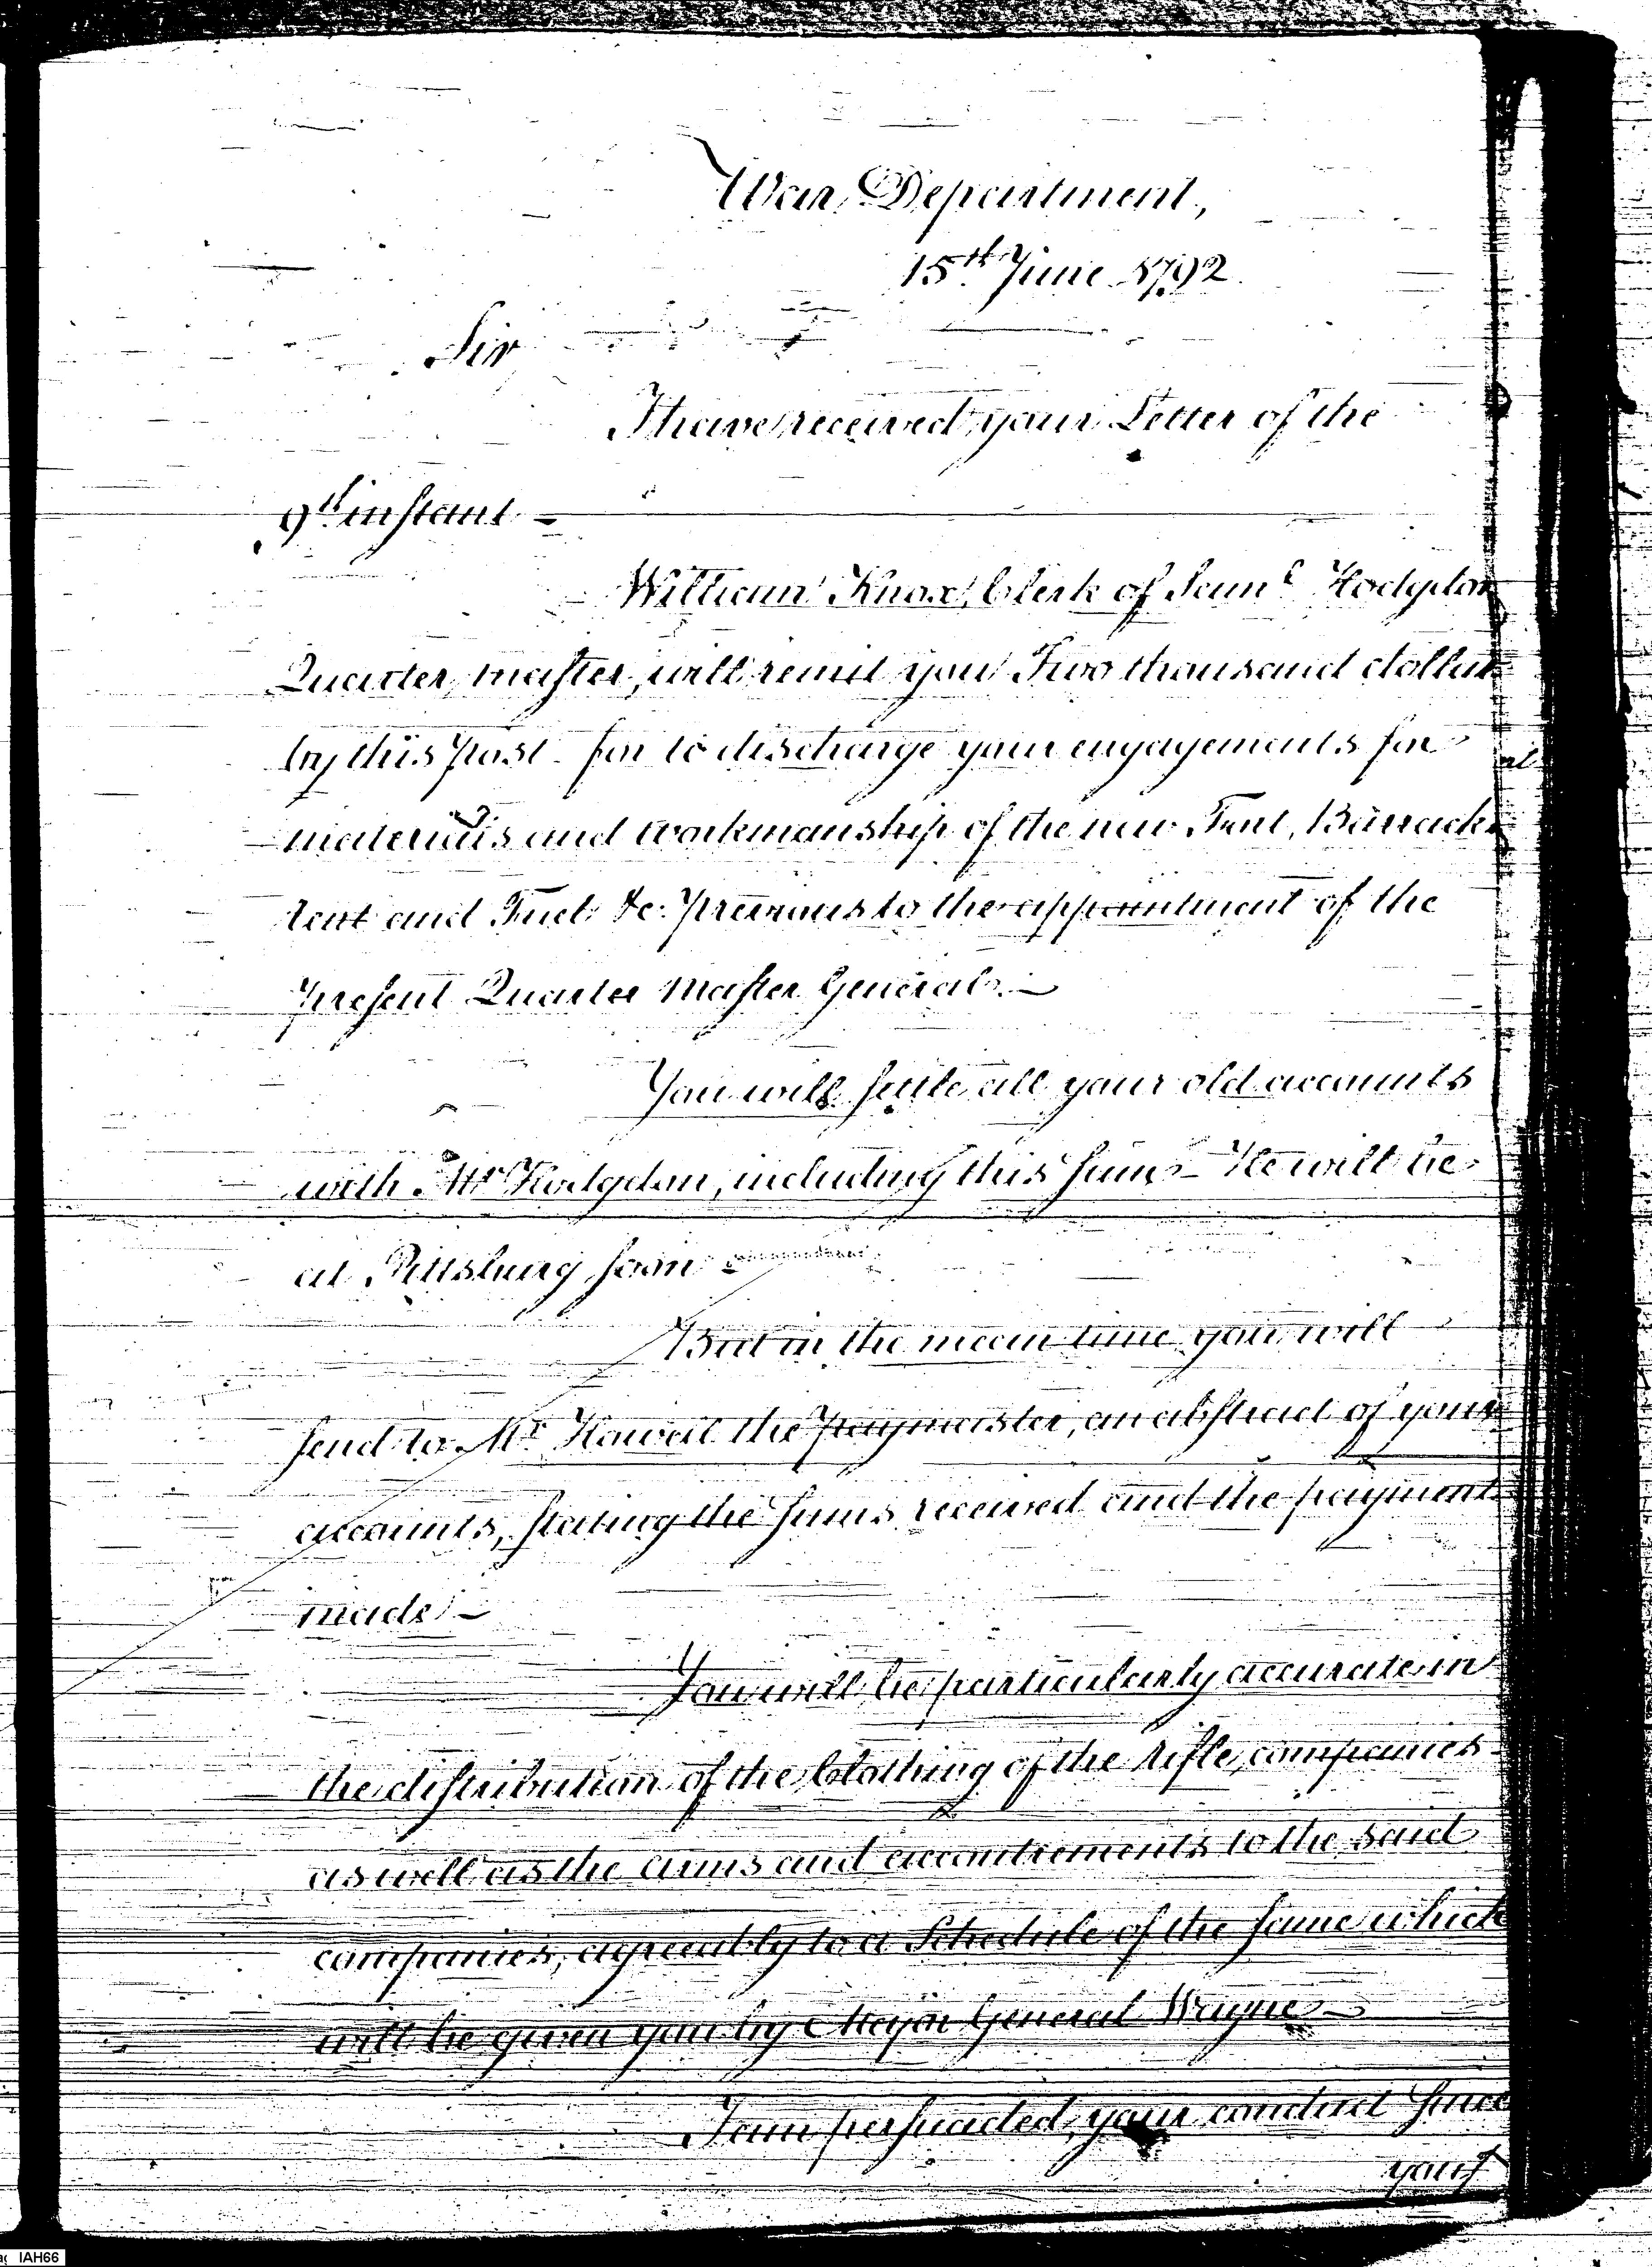 War Department,
15th June 1792.
Sir
I have received your Letter of the
9th instant –
William Knox, Clerk of Saml Hodgdon
Quarter master, will remit you Two thousand dollars
by this post – for to discharge your engagements for
materials and workmanship of the new Fort, Barrack
rent and Fuel &c. previous to the appointment of the
present Quarter Master General. –
You will settle all your old accounts
with Mr Hodgdon, including this sum – He will be
at Pittsburg soon –
But in the mean time you will
send to Mr Howell the paymaster, an abstract of your
accounts, stating the sums received and the payments
made –
You will be particularly accurate in
the distribution of the Clothing of the rifle companies
as well as the arms and accoutrements to the said
companies, agreeably to a Schedule of the same which
will be given you by Major General Wayne –
I am persuaded, your conduct since
your
IAH66